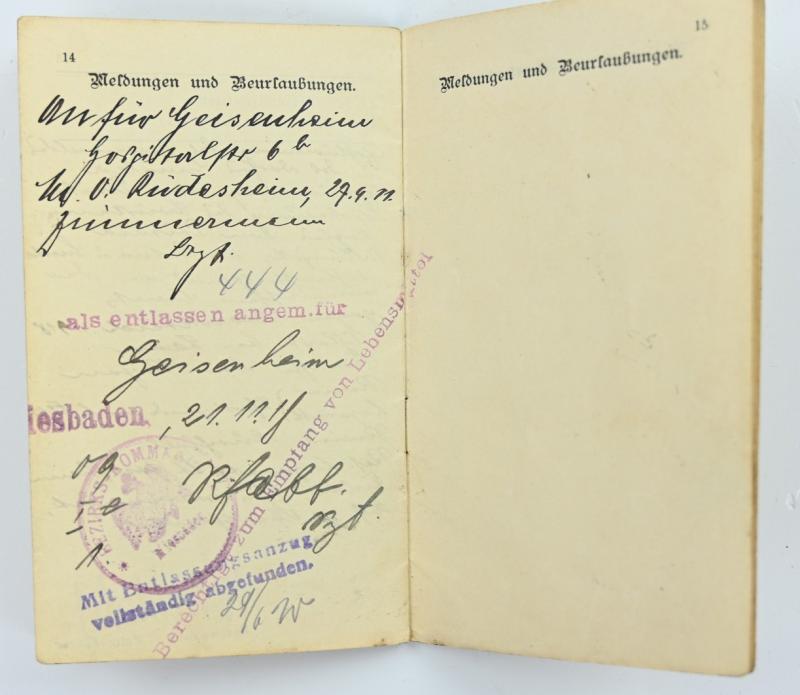 14
Meldungen und Beurlaubungen.
An für Geisenheim
Hospitalstr 6 b
M. O. Rüdesheim, 27.9.11
Zimmermann
444
als entlassen angem. für
Geisenheim
iesbaden, 21.11.18
BEZIRKS KOMMA
Mit Entlassungsanzug
vollständig abgefunden.
29/6
Berechtigt zum Empfang von Lebensmittel
15
Meldungen und Beurlaubungen.